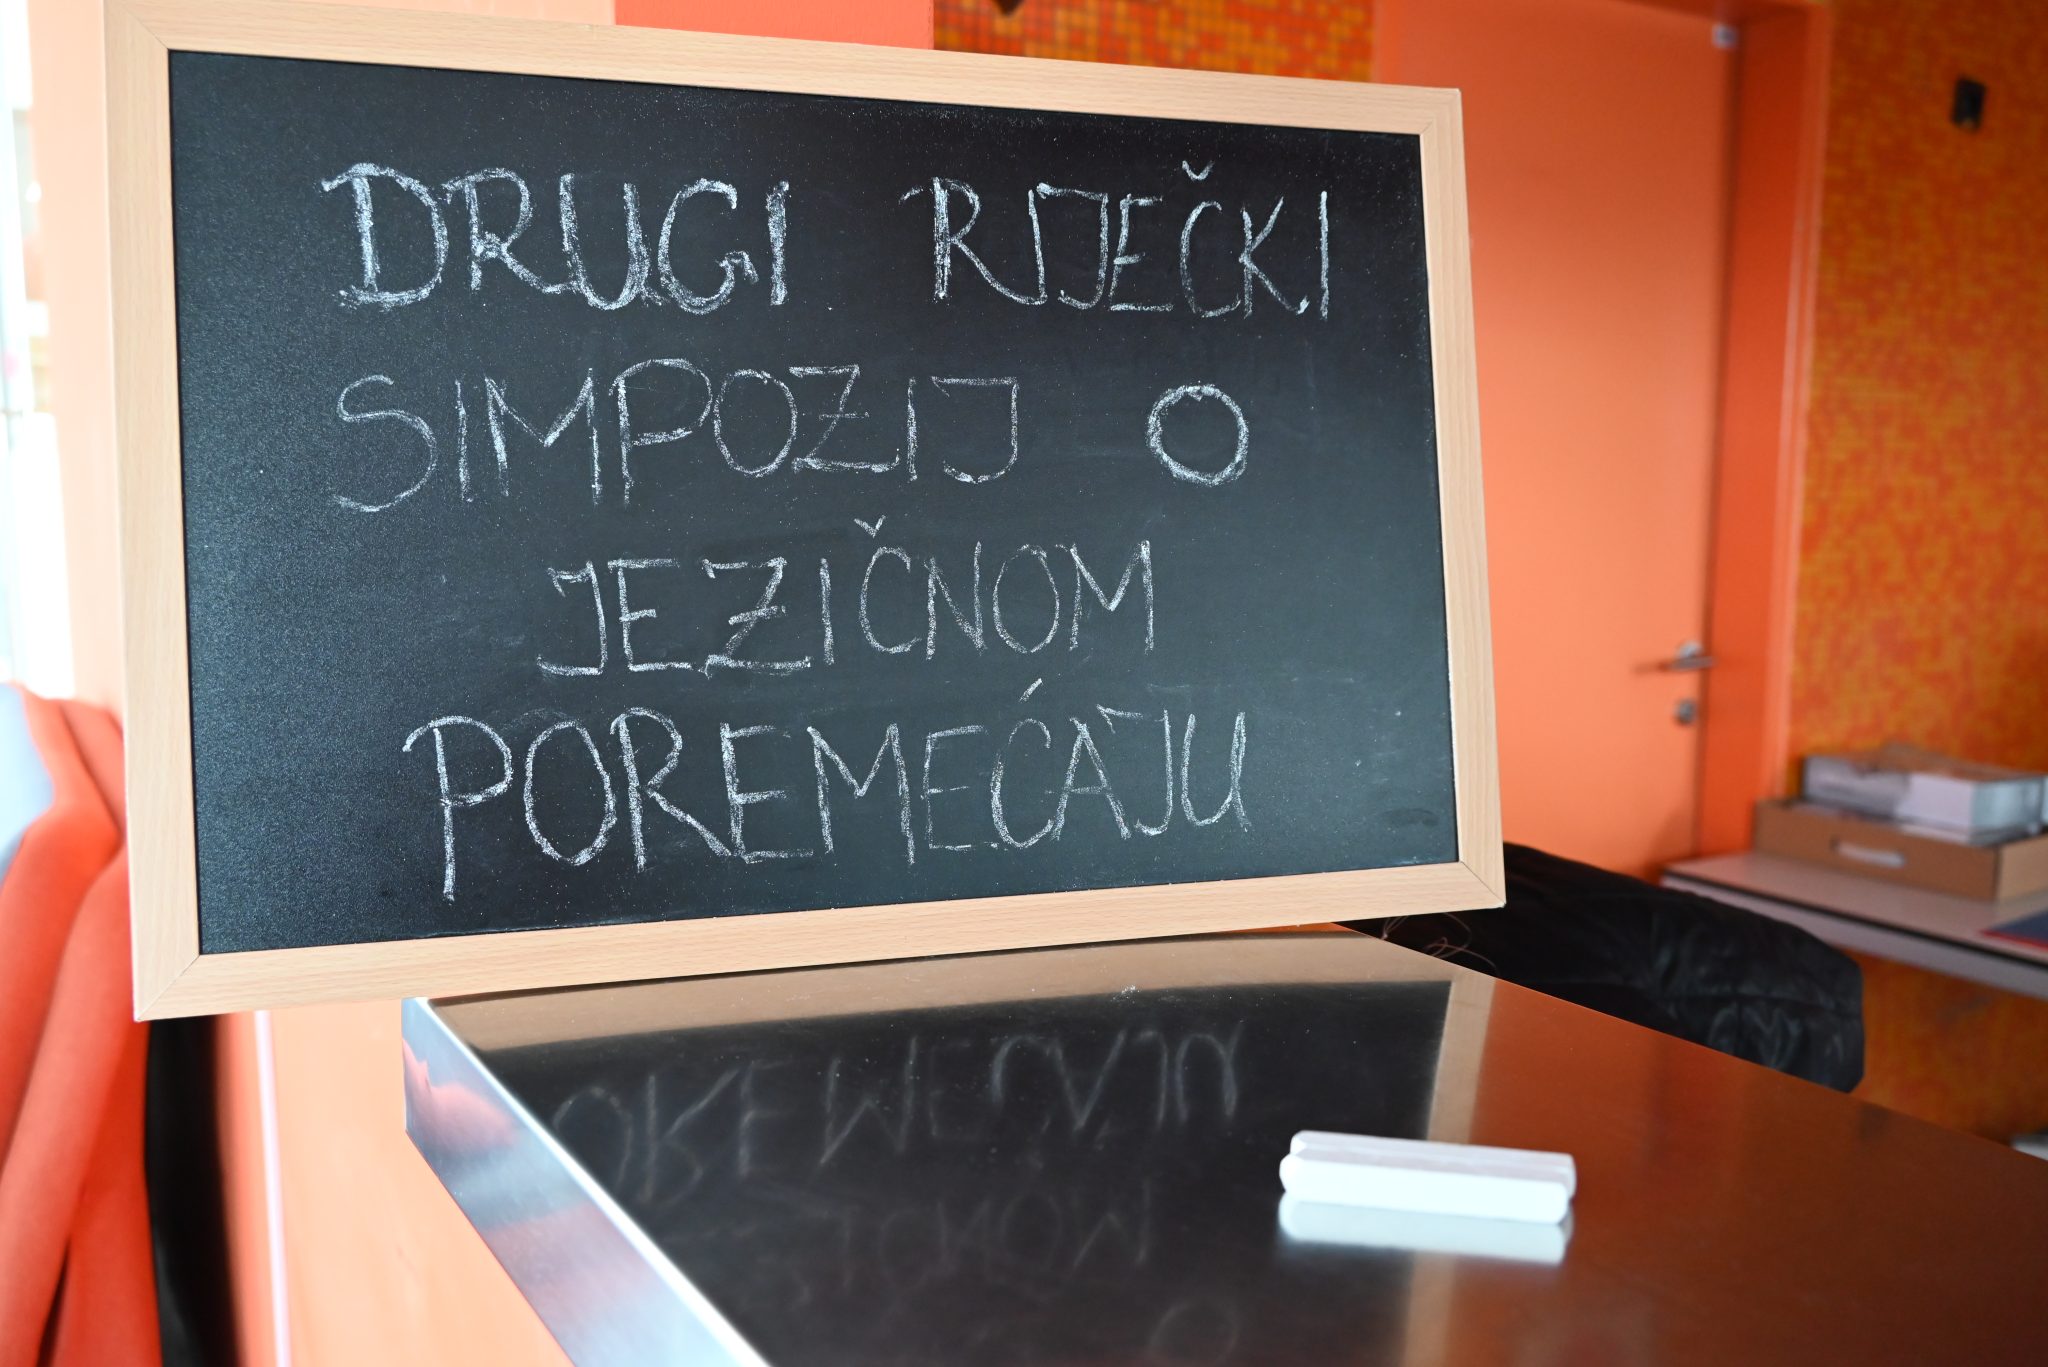 DRUGI RIJEČKI
SIMPOZIJ O
JEZIČNOM
POREMEĆAJU